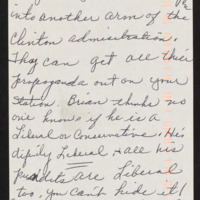 into another arm of the
Clinton admisistration.
They can get all their
propaganda out on your
Station. Brian thinks no
one knows if he is a
Liberal or Conservative. He's
difinitly Liberal & all his
pundits are Liberal
too, You can't hide it!